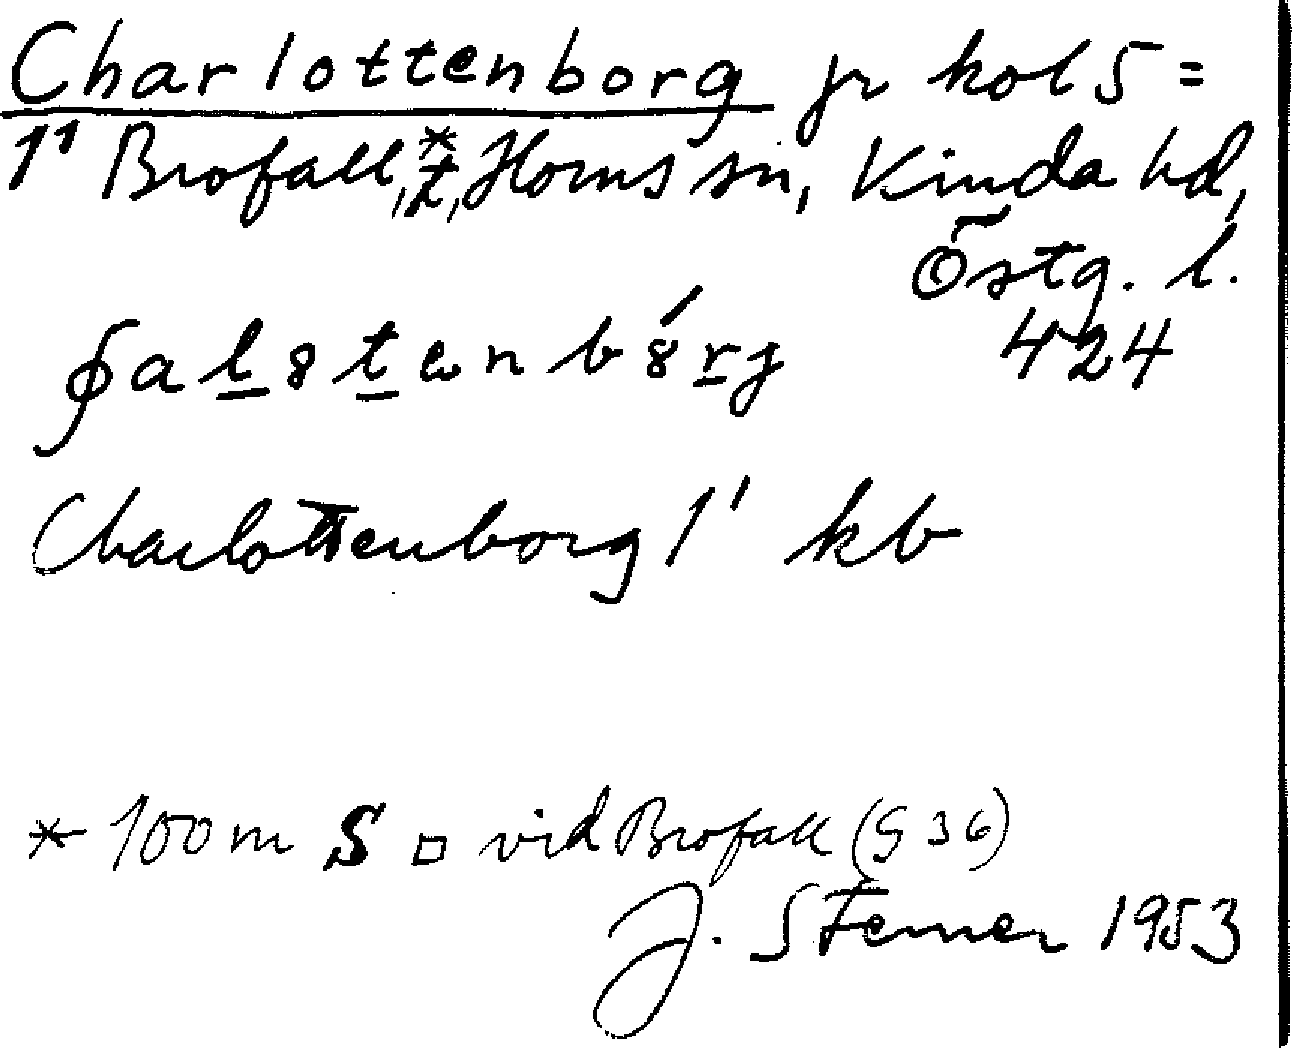 Charlottenborg fr kol 5 =
1¹ Brofall, *t, Horns sn, Kinda hd,
Östg. l.
424
Charlottenborg 1¹ kb
* 100 m S □ vid Brofall (S 36)
J. Sterner 1953